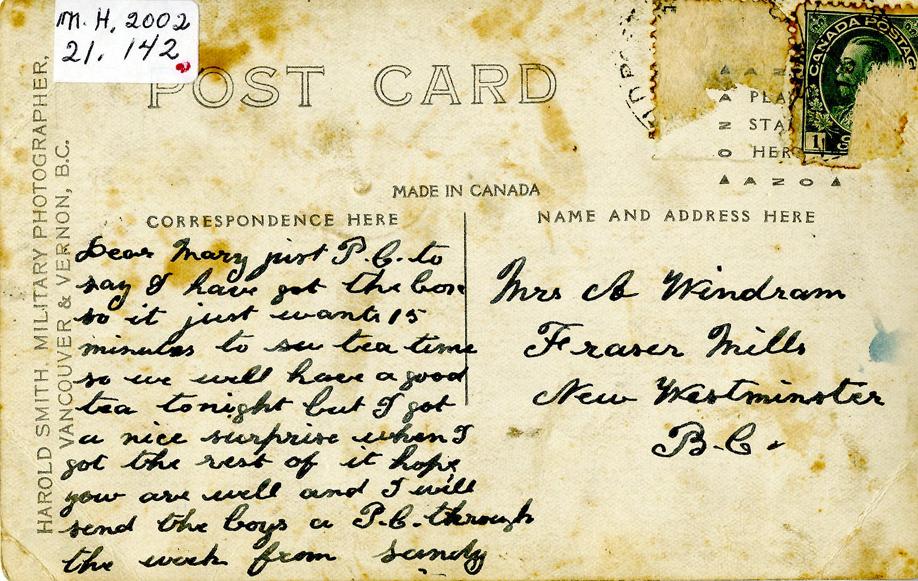 M.H. 2002
21. 142
HAROLD SMITH, MILITARY PHOTOGRAPHER,
VANCOUVER & VERNON, B.C.
POST CARD
CANADA POSTAG
1
PLA
STA
HER
AZO
MADE IN CANADA
CORRESPONDENCE HERE
Dear Mary just P.C. to
say I have got the box
so it just wants 15
minutes to su tea time
so we will have a good
tea tonight but I got
a nice surprise when I
got the rest of it hope
you are well and I will
send the boys a P.C. through
the week from Sandy
NAME AND ADDRESS HERE
Mrs A Windram
Fraser Mills
New Westminster
B.C.